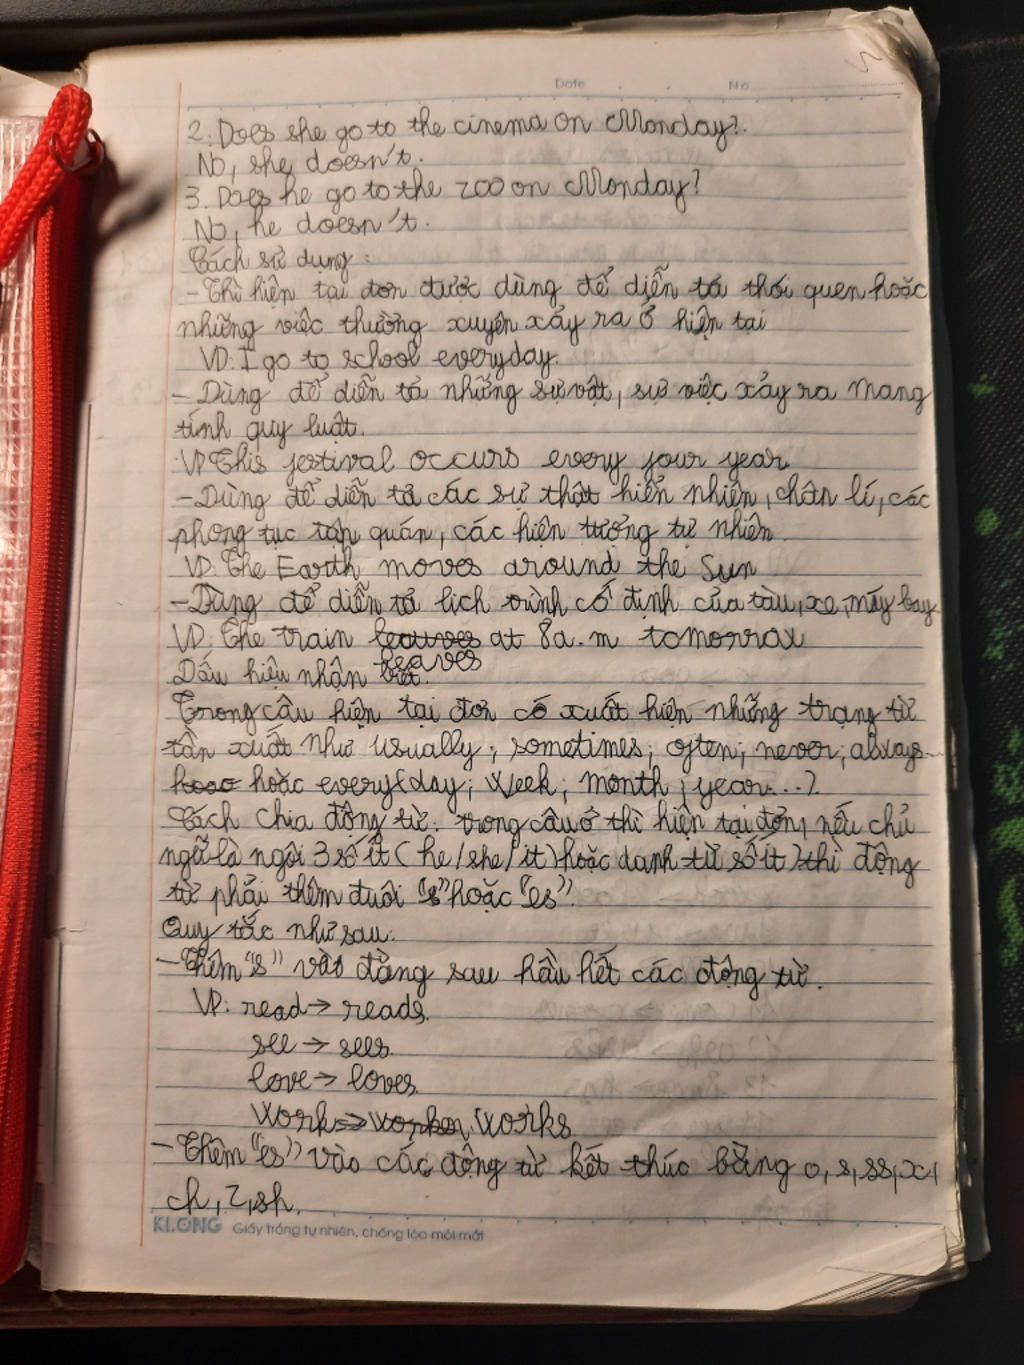 Date . . No
2. Does she go to the cinema on Monday?.
No, she doesn't.
3. Does he go to the zoo on Monday?
No, he doesn't.
Cách sử dụng:
- Thì hiện tại đơn được dùng để diễn tả thói quen hoặc
những việc thường xuyên xảy ra ở hiện tại
VD: I go to school everyday.
- Dùng để diễn tả những sự vật, sự việc xảy ra mang
tính quy luật.
VD This festival occurs every four year
- Dùng để diễn tả các sự thật hiển nhiên, chân lí, các
phong tục tập quán, các hiện tượng tự nhiên.
VD: The Earth moves around the Sun
- Dùng để diễn tả lịch trình cố định của tàu, xe, máy bay
VD: The train leaves at 8 a.m tomorrow
Dấu hiệu nhận biết:
Trong câu hiện tại đơn có xuất hiện những trạng từ
tần xuất như usually; sometimes; often; never; always
hoặc every (day; week; month; year...).
Cách chia động từ: trong câu ở thì hiện tại đơn, nếu chủ
ngữ là ngôi 3 số ít (he/she/it) hoặc danh từ số ít) thì động
từ phải thêm đuôi "s" hoặc "es".
Quy tắc như sau:
- Thêm "s" vào đằng sau hầu hết các động từ.
VD: read → reads.
see → sees
love → loves
work → works
- Thêm "es" vào các động từ kết thúc bằng o, s, ss, x,
ch, z, sh.
KLONG Giấy trắng tự nhiên, chống lóa mỏi mắt